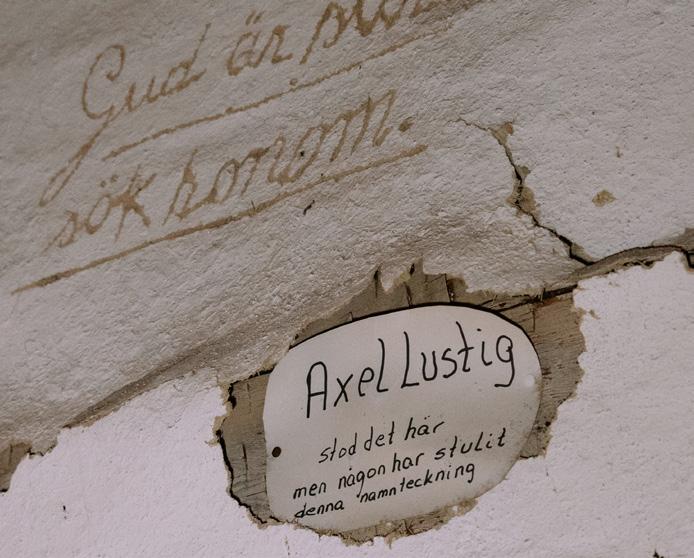 Gud är
sök honom.
Axel Lustig
stod det här
men någon har stulit
denna namnteckning